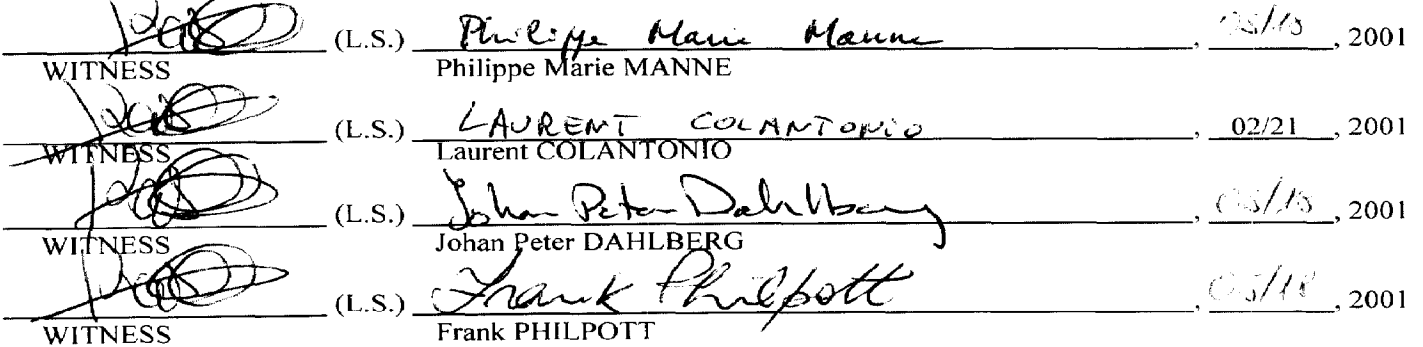 (L.S.) Philippe Marie Manne, 2001
WITNESS Philippe Marie MANNE
(L.S.) LAURENT COLANTONIO, 02/21, 2001
WITNESS Laurent COLANTONIO
(L.S.) Johan Peter Dahlberg, 2001
WITNESS Johan Peter DAHLBERG
(L.S.) Frank Philpott, 2001
WITNESS Frank PHILPOTT